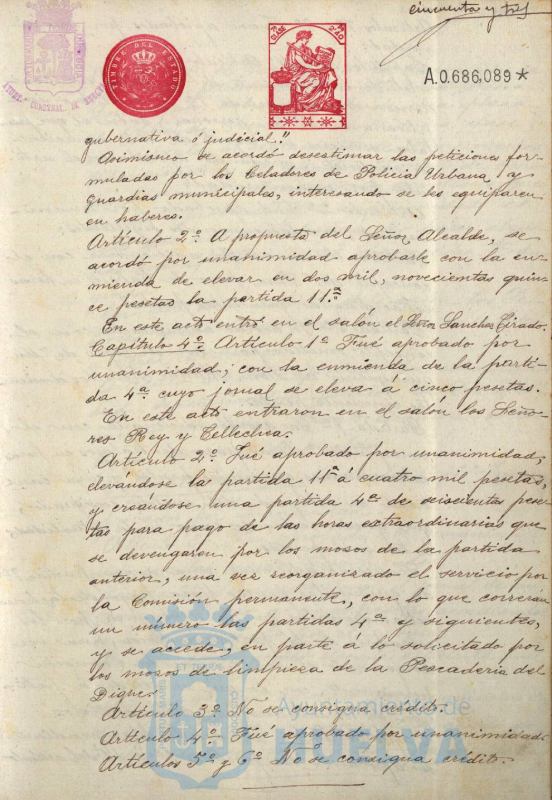 cincuenta y tres
TIMBRE DEL ESTADO
8ª CLASE
A.0.686,089*
gubernativa ó judicial."
Asimismo se acordó desestimar las peticiones for-
muladas por los Celadores de Policía Urbana y
guardias municipales, interesando se les equiparen
en haberes.
Artículo 2º. A propuesta del Señor Alcalde, se
acordó por unanimidad aprobarle con la en-
mienda de elevar en dos mil, novecientas quin-
ce pesetas la partida 11.ª
En este acto entró en el salón el Señor Sanchez Tirado.
Capítulo 4º. Artículo 1º Fué aprobado por
unanimidad, con la enmienda de la parti-
da 4ª cuyo jornal se eleva á cinco pesetas.
En este acto entraron en el salón los Seño-
res Rey y Tellechea.
Artículo 2º. Fué aprobado por unanimidad,
elevándose la partida 11ª á cuatro mil pesetas,
y creándose una partida 4ª de seiscientas pese-
tas para pago de las horas extraordinarias que
se devengaren por los mosos de la partida
anterior, una vez reorganizado el servicio por
la Comisión permanente, con lo que correrán
un número las partidas 4ª y siguientes,
y se accede, en parte á lo solicitado por
los mosos de limpieza de la Pescadería del
Dique.
Artículo 3º. No se consigna crédito.
Artículo 4º Fué aprobado por unanimidad.
Artículos 5º y 6º No se consigna crédito.
Ayuntamiento de
HUELVA